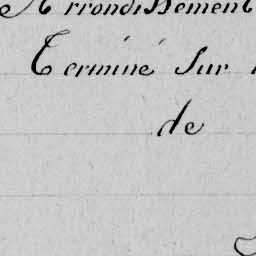 Arrondissement
Terminé Sur
de